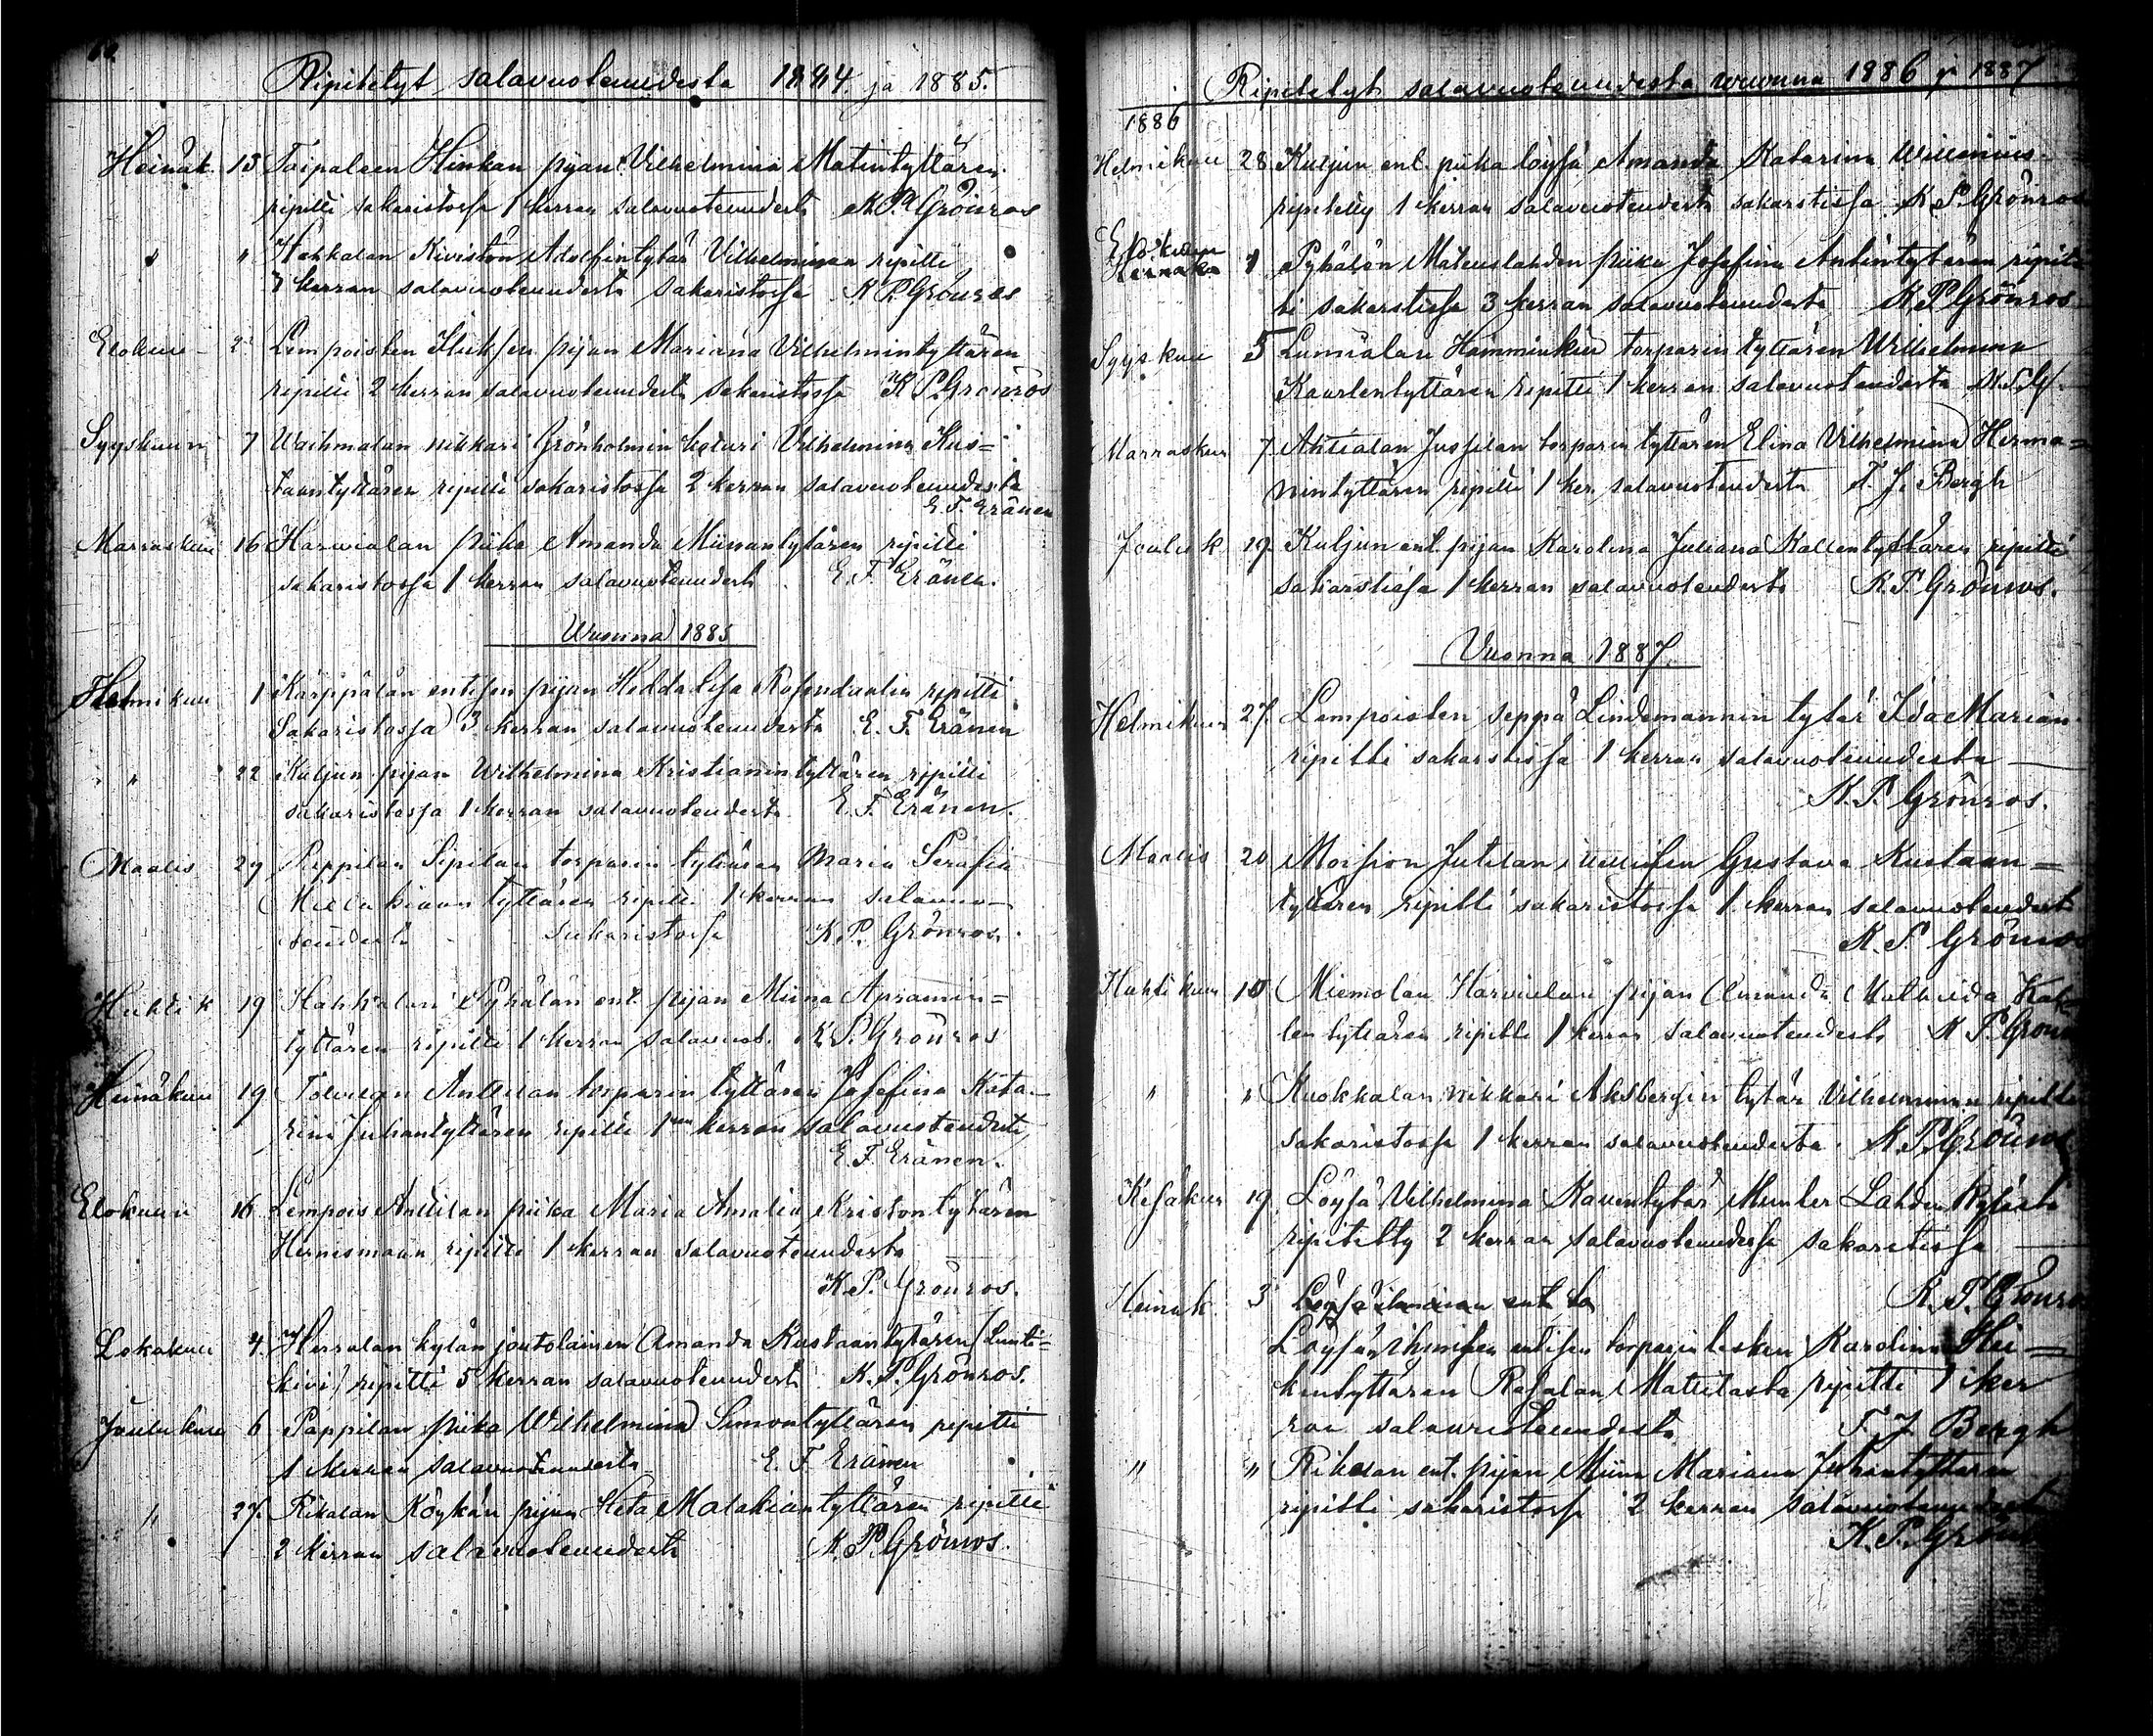 Ripitetyt salavuoteudesta 1884. ja 1885.
Heinäk. 13 Taipaleen Hinkan pijan Vilhelmina Matintyttären
ripitti sakaristossa 1 kerran salavuoteudesta K. P. Grönroos
" " Hahkalan Kivistön Adolfintytär Vilhelmina ripitti
kerran salavuoteudesta sakaristossa K. P. Grönroos
Elokuu 2 Lempoisten pijan Mariana Vilhelmintyttären
ripitti 2 kerran salavuoteudesta sakaristossa K P. Grönroos
Syyskuun 7 Waihmalan nikkari Grönholmin Vilhelmina Kus-
taantyttären ripitti sakaristossa 2 kerran salavuoteudesta
E. F. Eränen
Marraskuu 16 Harvialan piika Amanda Miinantytären ripitti
sakaristossa 1 kerran salavuoteudesta E. F. Eränen.
Wuonna 1885
Helmikuu 1 Kärppälän entisen pijan Hedda Lisa Rosendaalin ripitti
Sakaristossa 3 kerran salavuoteudesta E. F. Eränen
" 22 Kuljun pijan Wilhelmina Kristianintyttären ripitti
sakaristossa 1 kerran salavuoteudesta E. F. Eränen.
Maalis 29 Pappilan Sipilan torparin tyttären Maria Serafia
tyttären ripitti 1 kerran salavuo-
teudesta sakaristossa K. P. Grönroos.
Huhtik 19 Hahkalan Pyhälän ent. pijan Miina Apramin=
tyttären ripitti 1 kerran salavuot. K. P. Grönroos
Heinäkuu 19 Anttilan torparin tyttären Josefina Kata-
rina Juhantyttären ripitti 1 kerran salavuoteudesta
E. F. Eränen.
Elokuun 16 Lempois Anttilan piika Maria Amalia Kristontytären
Hernesmaan ripitti 1 kerran salavuoteudesta
K. P. Grönroos.
Lokakuu 4. Herralan kylän joutolainen Amanda Kustaantytären (Luuti-
kivi) ripitti 5 kerran salavuoteudesta K. P. Grönroos.
Joulukuu 6 Pappilan piika Wilhelmina Simontyttären ripitti
1 kerran salavuoteudesta E. F. Eränen
" 27. Rikalan Köykän pijan Heta Malakiantyttären ripitti
2 kerran salavuoteudesta K. P. Grönroos.
Ripitetyt salavuoteudesta wuonna 1886 ja 1887
1886
Helmikuu 28. Kuljun ent. piika löysä Amanda Katarina Willenius
ripitetty 1 kerran salavuoteudesta sakarstissa K. P. Grönroos
Elokuun
Heinäku 1 Pyhälön Mateuslahden piika Josefina Antintytären ripitet-
ti sakarstissa 3 kerran salavuoteudesta K. P. Grönroos
Syyskuu 5 Lumialan Hämminkin torparin tyttären Wilhelmina
Kaarlentyttären ripitti 1 kerran salavuoteudesta K. P. G.
Marraskuu 7. Ahtialan Jussilan torparin tyttären Elina Vilhelmina Herma=
nintyttären ripitti 1 ker. salavuoteudesta F. J. Bergh
Jouluk 19. Kuljun ent. pijan Karolina Juliana Kallentyttären ripitti
sakarstissa 1 kerran salavuoteudesta K. P. Grönroos.
Vuonna 1887.
Helmikuu 27. Lempoisten seppä Lindemannin tytär Ida Marian
ripitti sakarstissa 1 kerran salavuoteudesta
K. P. Grönroos.
Maalis 20 Moision Jutilan Gustava Kustaan=
tyttären ripitti sakaristossa 1 kerran salavuoteudesta
K. P. Grönroos
Huhtikuu 10 Miemolan Harvialan pijan Amanda Kal-
len tyttären ripitti 1 kerran salavuoteudesta K. P. Grönroos
" " Kuokkalan nikkari Aksbergin tytär Vilhelmina ripitti
sakaristossa 1 kerran salavuoteudesta. K. P. Grönroos
Kesäkuu 19. Löysä Vilhelmina Lahden kylästä
ripitetty 2 kerran salavuoteudesta sakarstissa
K. P. Grönroos
Heinäk 3
Löysän ihmisen entisen torparin lesken Karolina Hei=
kintyttären Rasalan Mattilasta ripitti 1 ker
ran salavuoteudesta F. J. Bergh
" " Rikalan ent. pijan Miina Mariana Juhantyttären
ripitti sakaristossa 2 kerran salavuoteudesta
K. P. Grönroos